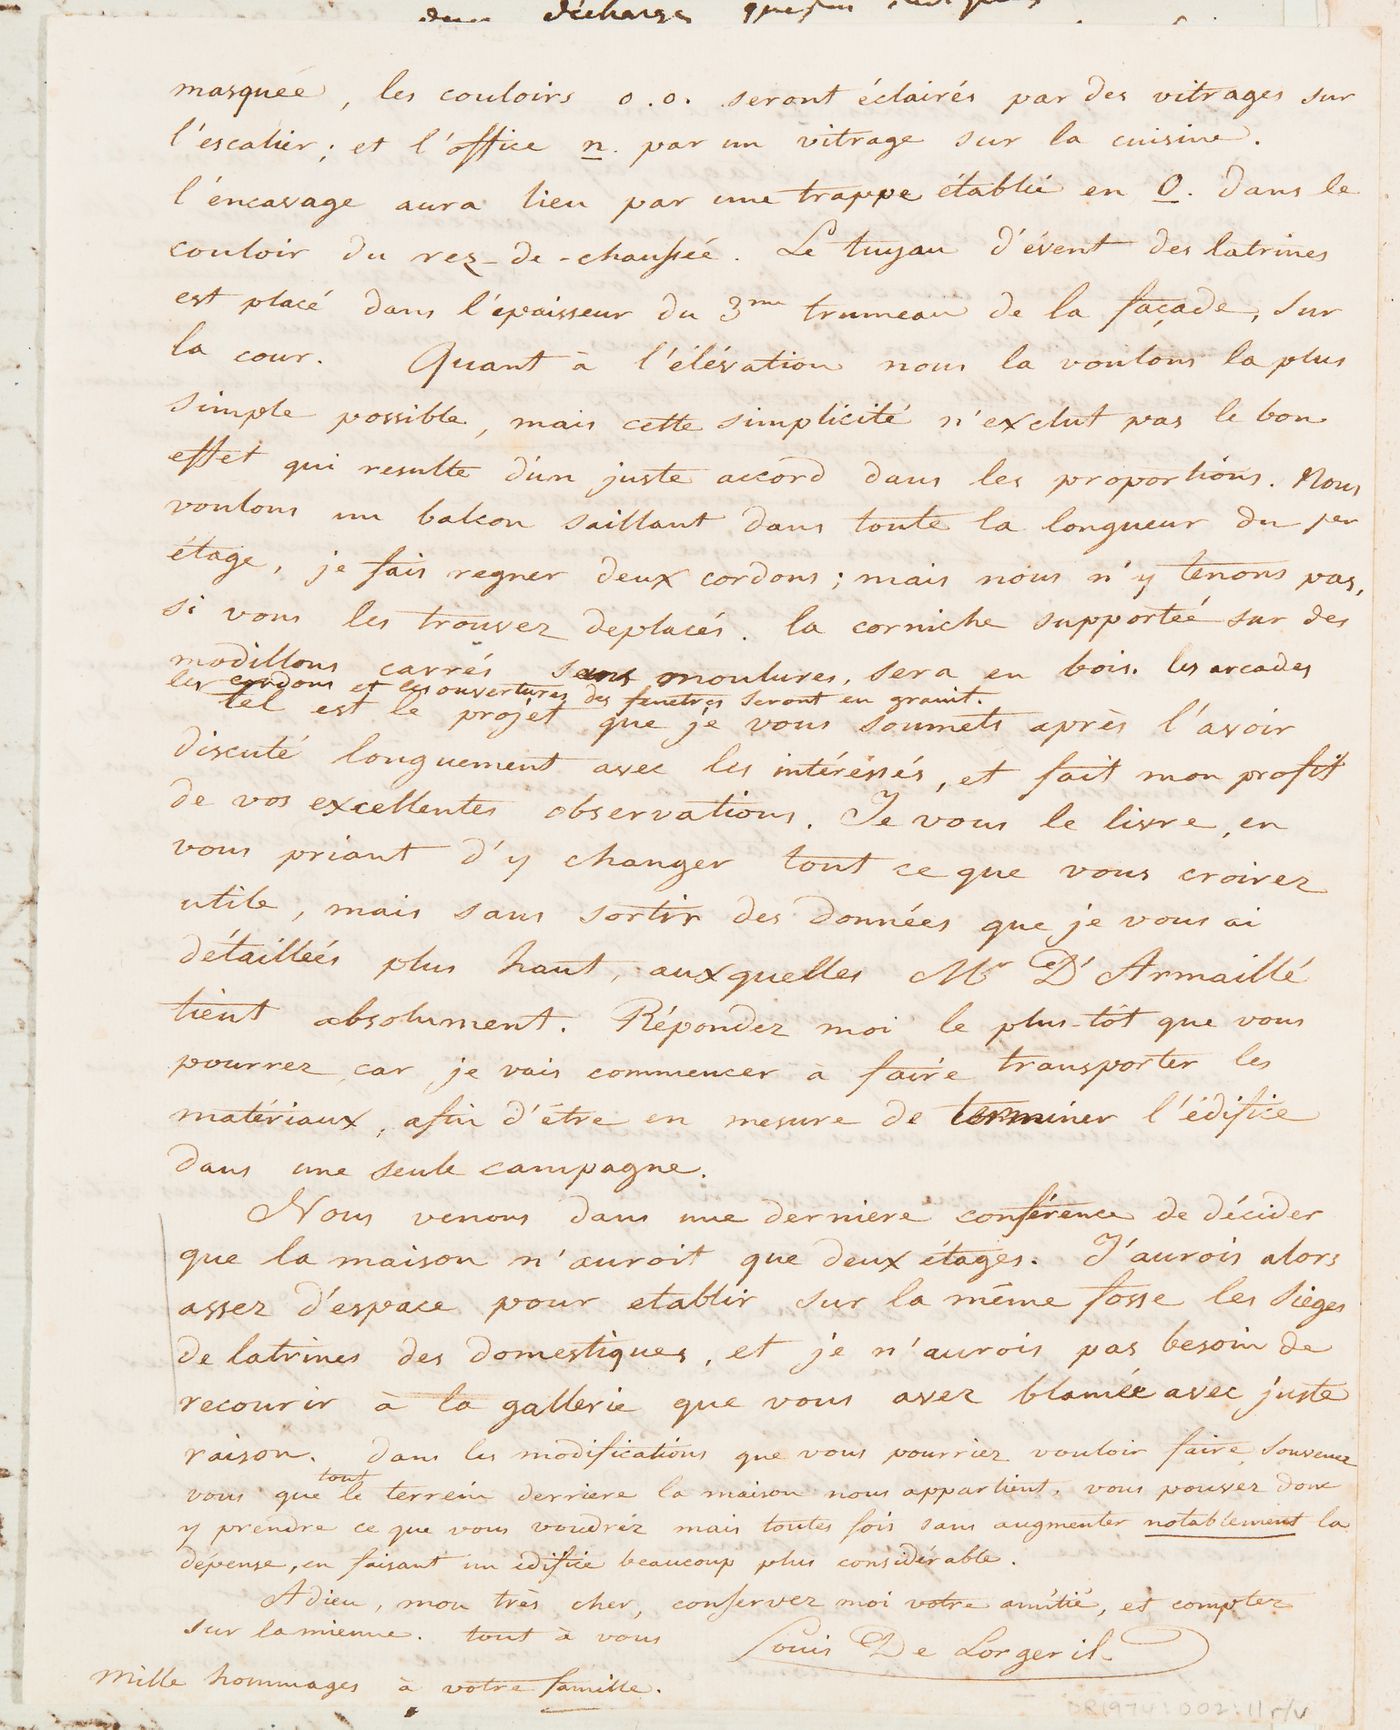 masqueé, les couloirs o.o. seront éclairés par des vitrages sur
l'escalier; et l'office n. par un vitrage sur la cuisine.
l'éncavage aura lieu par une trappe établie en O. dans le
couloir du rez-de-chausseé. Le tuyau d'évent des latrines
est placé dans l'épaisseur du 3me trumeau de la façade, sur
la cour. Quant à l'élévation nous la voulons la plus
simple possible, mais cette simplicité n'exclut pas le bon
effet qui resulte d'un juste accord dans les proportions. Nous
voulons un balcon saillant dans toute la longueur du per
étage, je fais regner deux cordons; mais nous n'y tenons pas,
si vous les trouvez deplacés. la corniche supporteé sur des
modillons carrés sans moulures, sera en bois. les arcades
les cordons et les ouvertures des fenetres seront en granit.
tel est le projet que je vous soumets après l'avoir
discuté longuement avec les intéréssés, et fait mon profit
de vos excellentes observations. Je vous le livre, en
vous priant d'y changer tout ce que vous croirez
utile, mais sans sortir des données que je vous ai
détailleés plus haut, auxquelles Mr D'Armaillé
tient absolument. Répondez moi le plus-tôt que vous
pourrez car je vais commencer à faire transporter les
matériaux, afin d'être en mesure de terminer l'édifice
dans une seule campagne.
Nous venons dans une derniere conférence de décider
que la maison n'auroit que deux étages. J'aurois alors
assez d'espace pour etablir sur la même fosse les sieges
de latrines des domestiques, et je n'aurois pas besoin de
recourir à la gallerie que vous avez blamée avec juste
raison. dans les modifications que vous pourriez vouloir faire, souvenez
vous que tout le terrein derriere la maison nous appartient. vous pouvez donc
y prendre ce que vous voudrez mais toutes fois sans augmenter notablement la
dépense, en faisant un edifice beaucoup plus considérable.
Adieu, mon très cher, conservez moi votre amitié, et comptez
sur la mienne. tout à vous Louis De Lorgeril
Mille hommages à votre famille.
DR1974:002:11 r/v